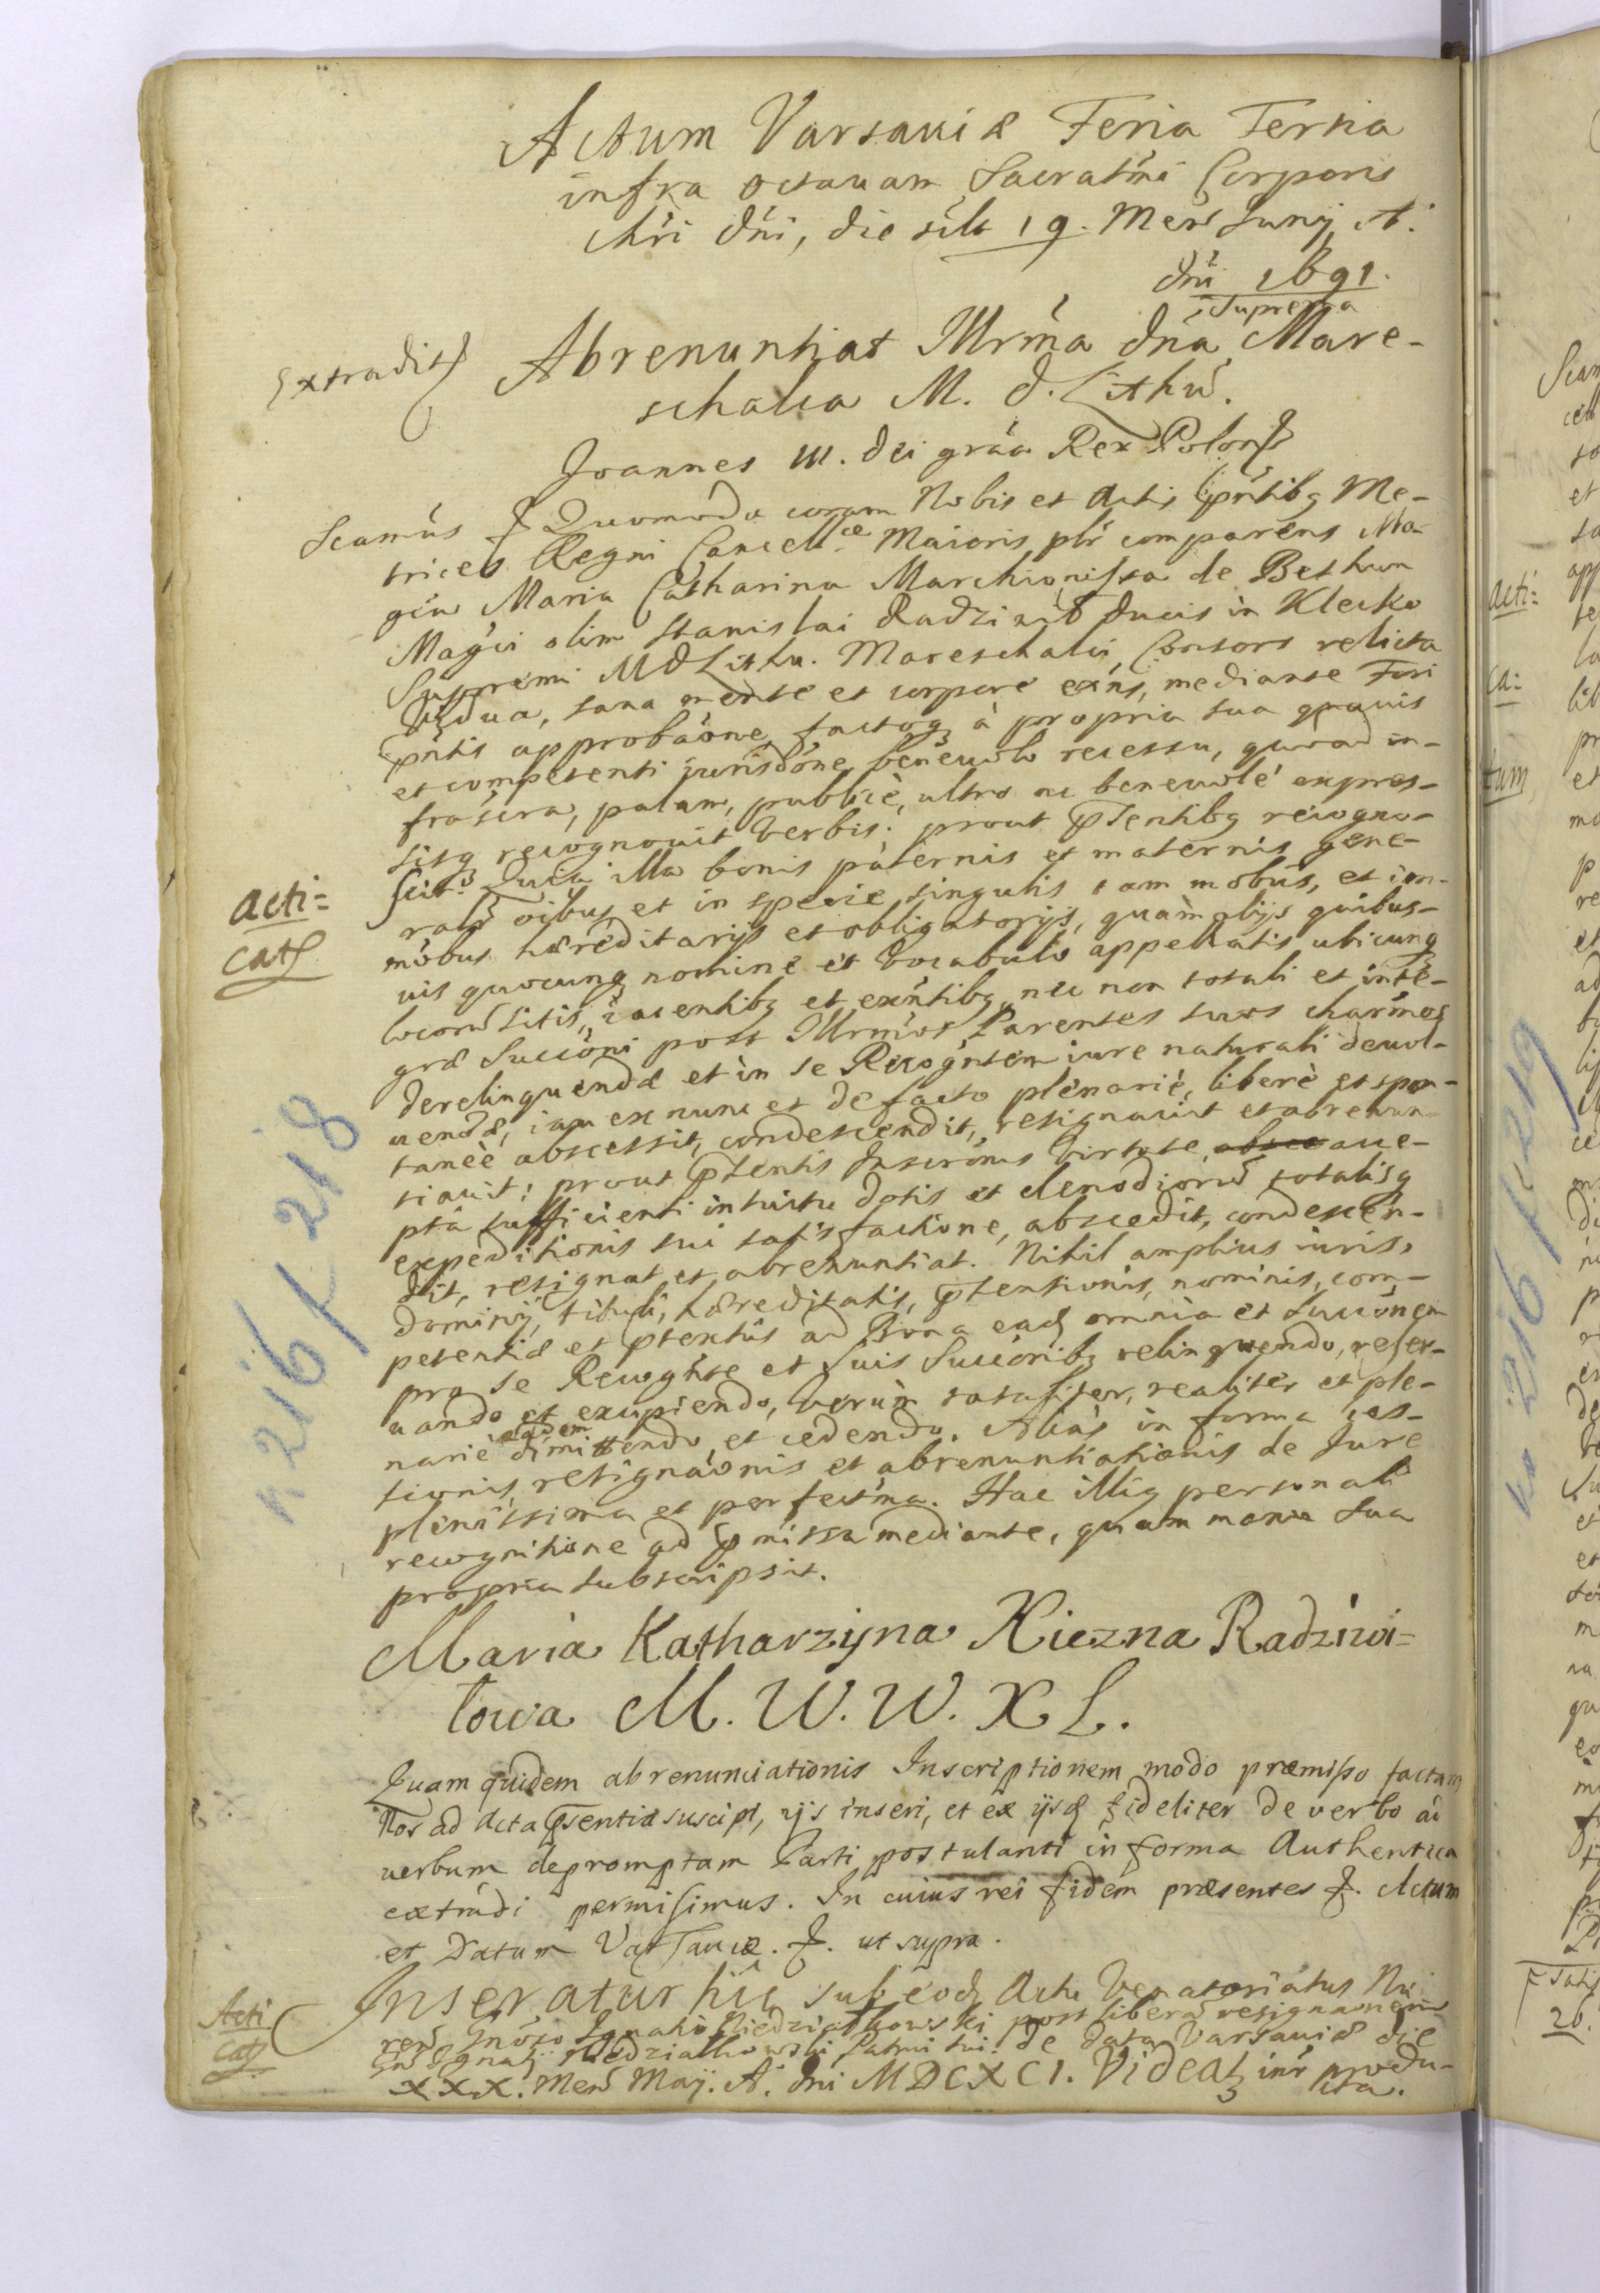 Actum Varsaviæ Feria Tertia
infra octavam Sacratmi Corporis
Chri Dni, die scilt 19. Mens Junij A.
Dni 1691.
Suprema
Extradit
Abrenuntiat Illrma Dna Mare-
schalca M. D. Lithu.
Joannes III. Dei gráa Rex Polon
Scamus Quomodo coram Nobis et Actis pntibq Me-
trices Regni Cancellæ Maioris plr comparens Ma-
gca Maria Catharina Marchionissa de Bethun
Magci olim Stanislai Radziwił Ducis in Klecko
Supremi MDLithu. Mareschalci, Consors relicta
Vidua, sana mente et corpore exns, mediante Fori
pntis approbaone, factoq à propria sua quavis
et competenti jurisdone benevolo recessu, quoad in-
frascra, palam, publicè, ultro ac benevolé expres-
sisq recognovit verbis: prout ptentibq recogno-
scit. Quia illa bonis paternis et maternis gene-
ralr oibus et in specie singulis tam mobus, et im-
mobus hæreditarijs et obligatorijs, quàm alijs quibus-
vis quocunq nomine et vocabulo appellatis ubicunq
locoru sitis, iacentibq et exntibq nec non totali et inte-
græ Succoni post Illrmos Parentes suos charmos
derelinquendæ et in se Recognten iure naturali devol-
vendæ, iam ex nunc et de facto plenariè, liberè et spon-
taneè abscessit, condescendit, resignavit et abrenun-
tiavit: prout ptentis Inscronis virtute, absce acce-
ptâ sufficienti intuitu dotis et clenodioru totalisq
expeditionis sui satisfactione, abscedit, condescen-
dit, resignat et abrenuntiat. Nihil amplius iuris,
dominij, tituli, hæreditatis, ptensionis, nominis, com-
petentiæ et ptextus ad Bona ead omnia et Succonem
pro se Recognte et suis Succoribq relinquendo, reser-
vando et excipiendo, verùm totaliter, realiter et ple-
eadem
nariè dimittendo et cedendo. Alias in forma ces-
sionis, resignaonis et abrenuntiationis de Jure
plenissima et perfectma. Hac illiq personali
recognitione ad pmissa mediante, quam manu sua
propria subscripsit.
Acti-
cat
k 216/k 218
Maria Katharzyna Xiezna Radziwi=
łowa M. W. W. X L.
Quam quidem abrenunciationis Inscriptionem modo præmisso factam
Nos ad Acta psentia suscipi, ijs inseri, et ex ijsd fideliter de verbo ad
verbum depromptam Parti postulanti in forma Authentica
extradi permisimus. In cuius rei fidem præsentes. Actum
et Datum Varsaviæ. ut supra.
Acti
cat
Inseratur hic sub eod Actu Venatoriatus
Gnoso Ignatio Niedziałkowski post liberam resignaonem
Gnsi Ignatij Niedziałkowski Patrui sui. De Data Varsaviæ die
XXX. Mens Maij. A. Dni MDCXCI. Videat inr produ-
cta.